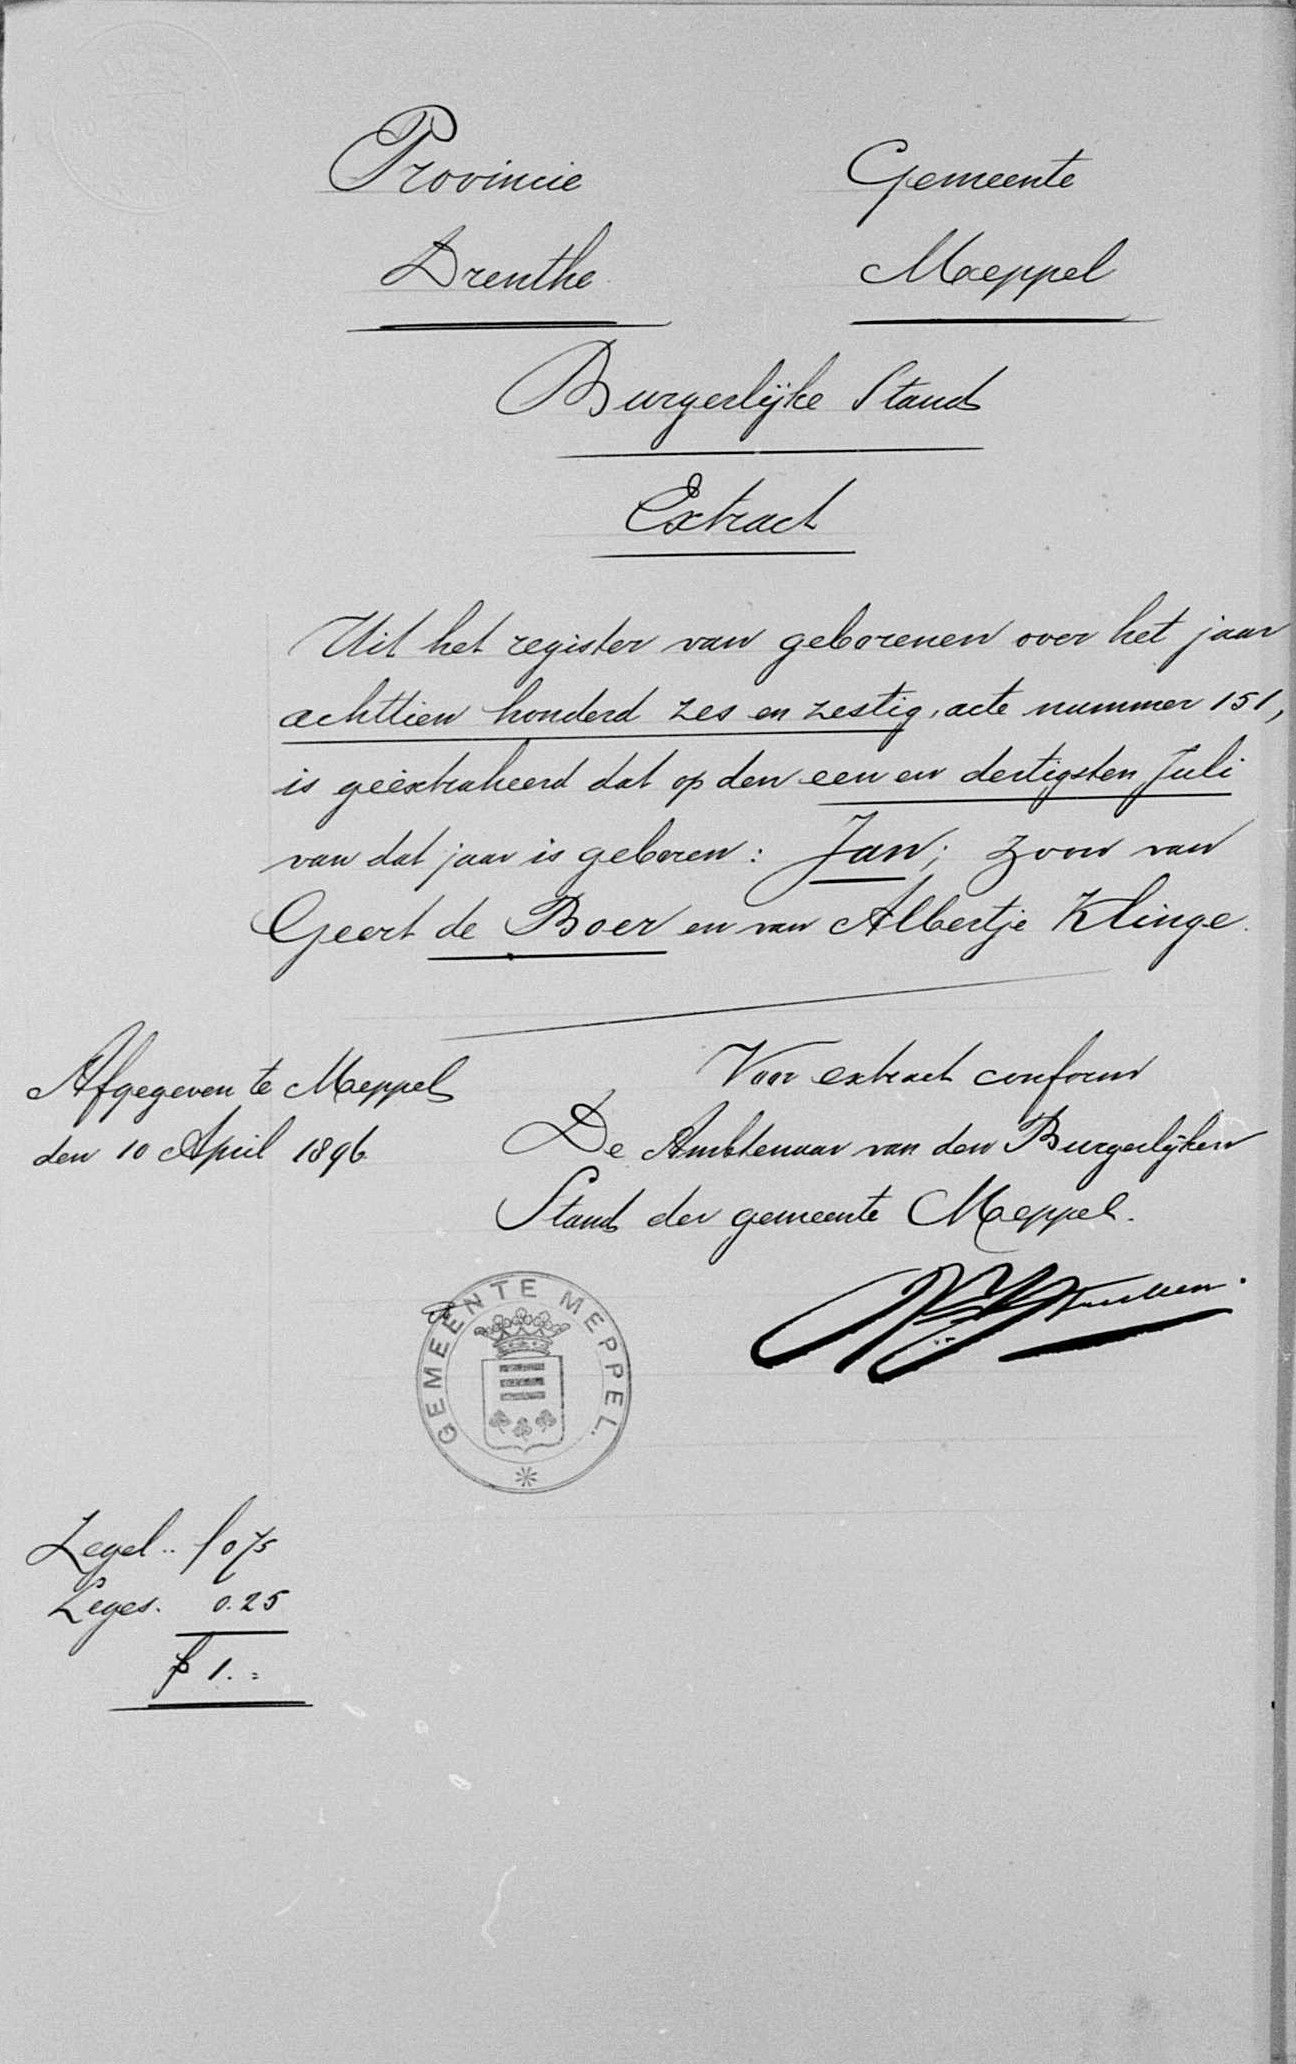 Provincie Gemeente
Drenthe Meppel
Burgerlijke Stand
Extract
Uit het register van geborenen over het jaar
achttien honderd zes en zestig, acte nummer 151,
is geëxtraheerd dat op den een en dertigsten Juli
van dat jaar is geboren: Jan; zoon van
Geert de Boer en van Albertje Klinge.
Afgegeven te Meppel
den 10 April 1896
Voor extract conform
De Ambtenaar van den Burgerlijken
Stand der gemeente Meppel.
GEMEENTE MEPPEL.
Zegel .. f 0.75
Leges. 0.25
f 1.=